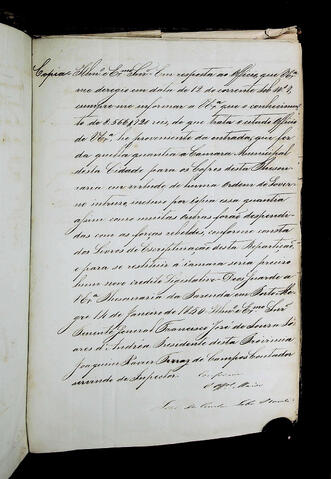 Copia Illmo e Exmo Snr. Em resposta ao Officio, que V Exa
me deregio em data de 12 do corrente sob No 3,
cumpre me informar a V Exa que o conhecimen
to de 8.566$720 reis, de que trata o citado Officio
de V Exa he proveniente da entrada, que fez
daquella quantia a Camara Municipal
desta Cidade para os Cofres desta Thesou
raria em virtude de huma Ordem do Gover
no
assim como muitas outras forão despendi
das com as forças rebeldes, conforme consta
dos Livros de Escripturação desta Repartição
e para se restituir á camara seria preciso
hum novo credito Legislativo. Deos Guarde a
V Exa Thesouraria da Fazenda em Porto Ale
gre 14 de Janeiro de 1850. Illmo e Exmo Snr
Tenente General Francisco José de Souza So
ares d'Andréa Presidente desta Provincia
Joaquim Xavier Ferraz de Campos Contador
servindo de Inspector.
O Offal Maior